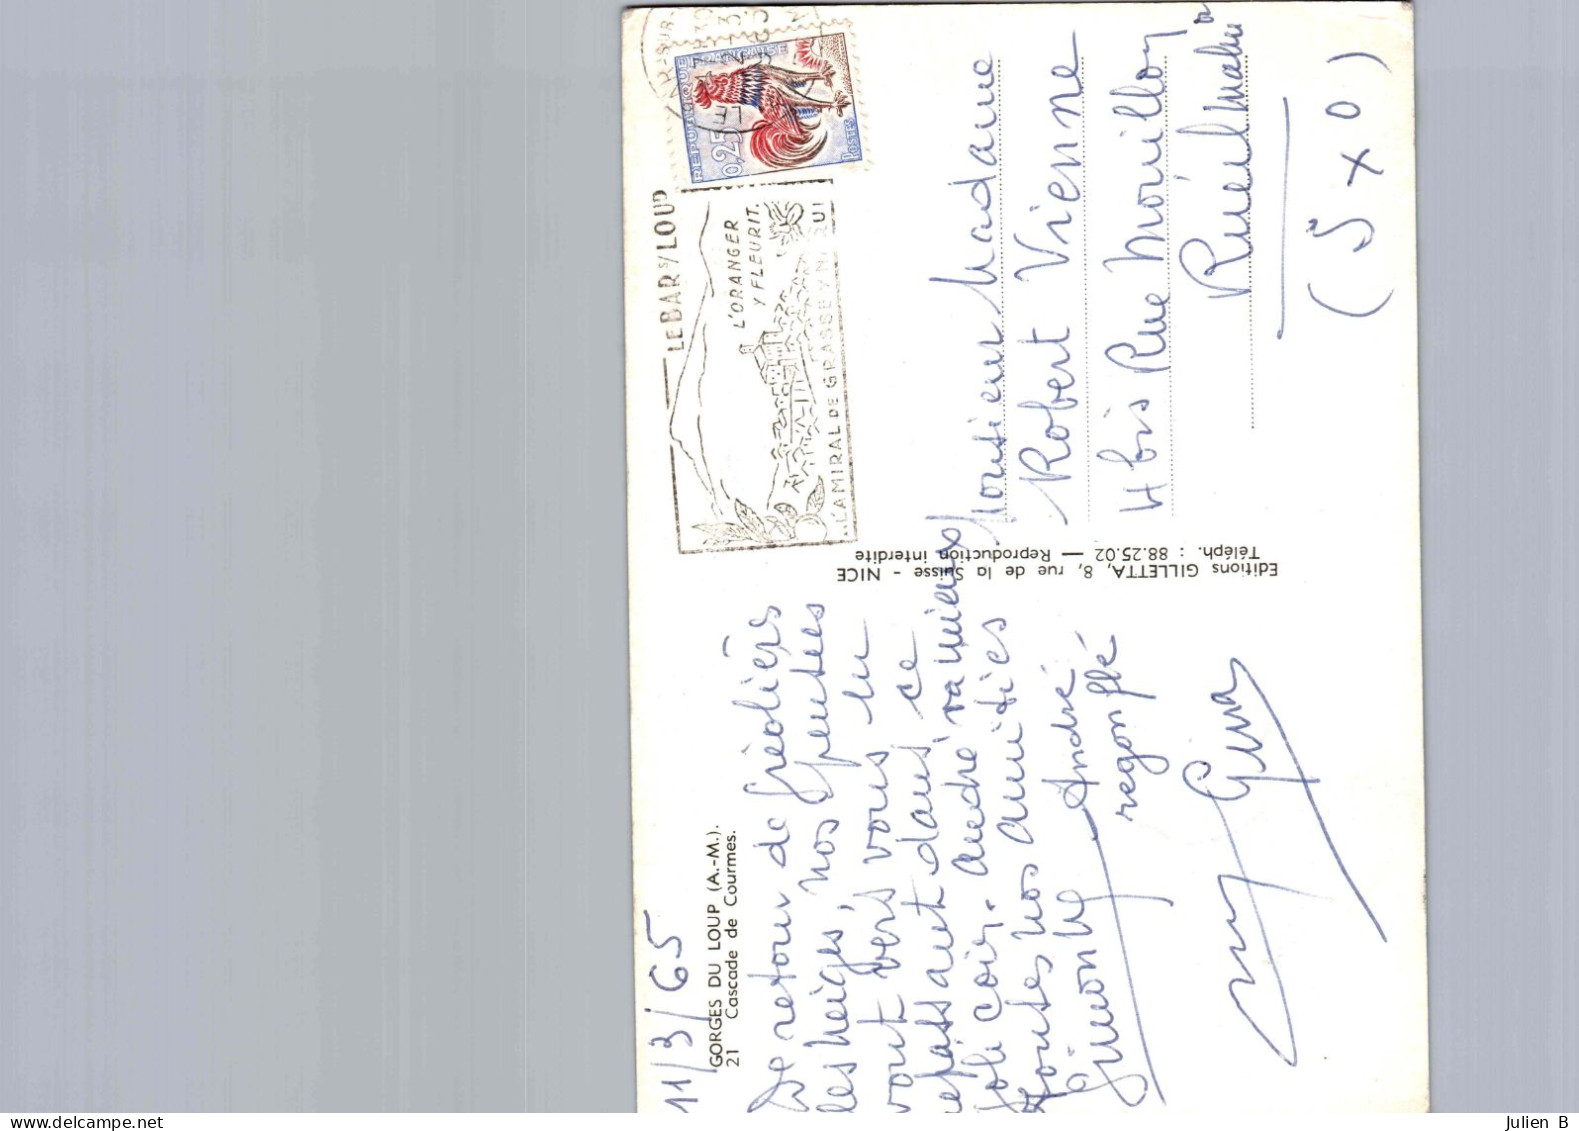 11/3/65
GORGES DU LOUP (A.-M.).
21 Cascade de Courmes.
De retour de
les neiges, nos pensées
vont vers vous en
repassant dans ce
joli coin. André va mieux
toutes nos amitiés
Simone André
regonflé
Editions GILLETTA, 8, rue de la Suisse - NICE
Téléph. : 88.25.02 — Reproduction interdite
LE BAR S/ LOUP
L'ORANGER
Y FLEURIT.
L'AMIRAL DE GRASSE Y NAQUIT
REPUBLIQUE FRANÇAISE
0,25
POSTES
Monsieur Madame
Robert Vienne
4 bis Rue Mouillon
Rueil Malm
(S x O)
Julien B